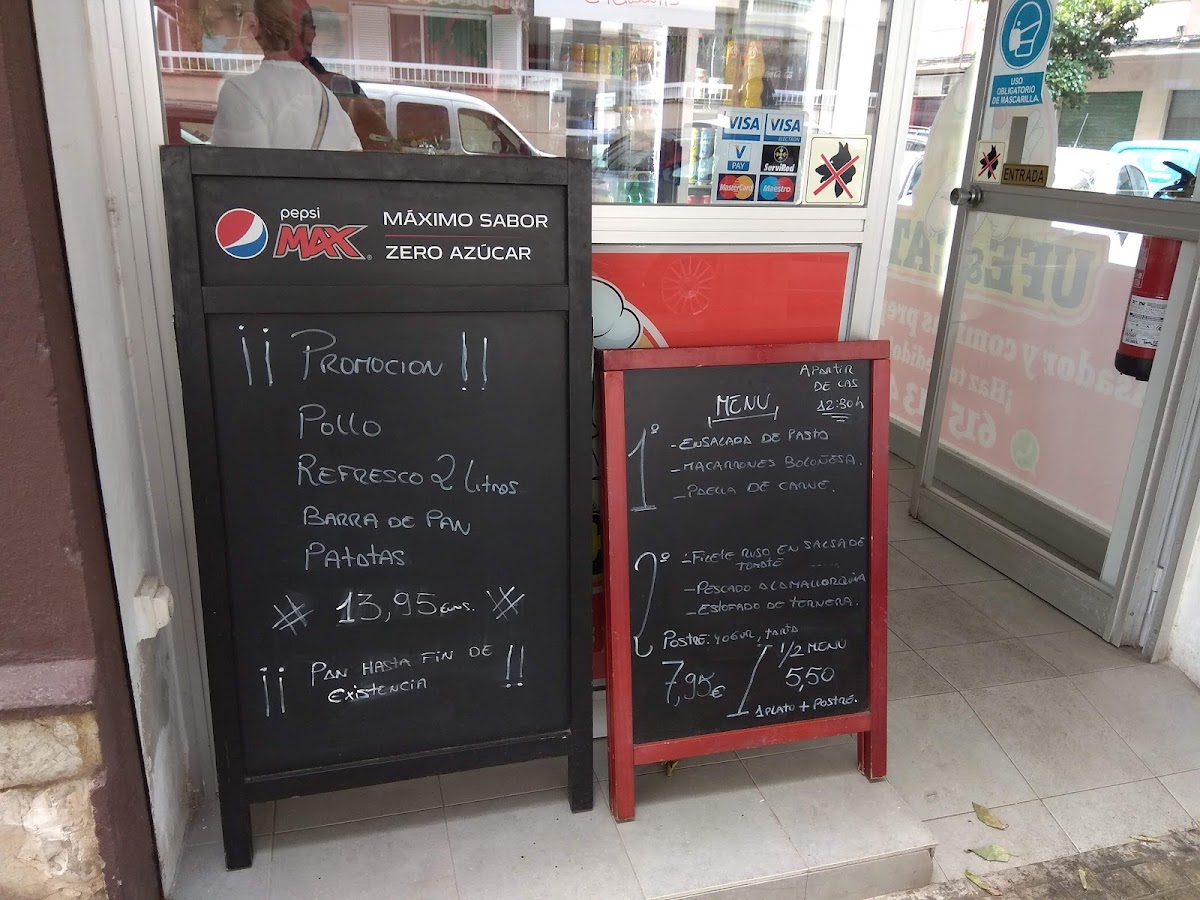 pepsi
MAX
MÁXIMO SABOR
ZERO AZÚCAR
¡¡ PROMOCION !!
POLLO
REFRESCO 2 LITROS
BARRA DE PAN
PATATAS
13,95 EUROS.
¡¡ PAN HASTA FIN DE
EXISTENCIA !!
A PARTIR
DE LAS
12:30h
MENU
1º
- ENSALADA DE PASTA
- MACARRONES BOLOÑESA.
- PAELLA DE CARNE.
2º
- FILETE RUSO EN SALSA DE
TOMATE
- PESCADO A LA MALLORQUINA
- ESTOFADO DE TERNERA.
POSTRE: YOGUR, TARTA
7,95€
1/2 MENU
5,50
1 PLATO + POSTRE.
VISA
VISA
ELECTRON
V
PAY
ServiRed
MasterCard
Maestro
USO
OBLIGATORIO
DE MASCARILLA
ENTRADA